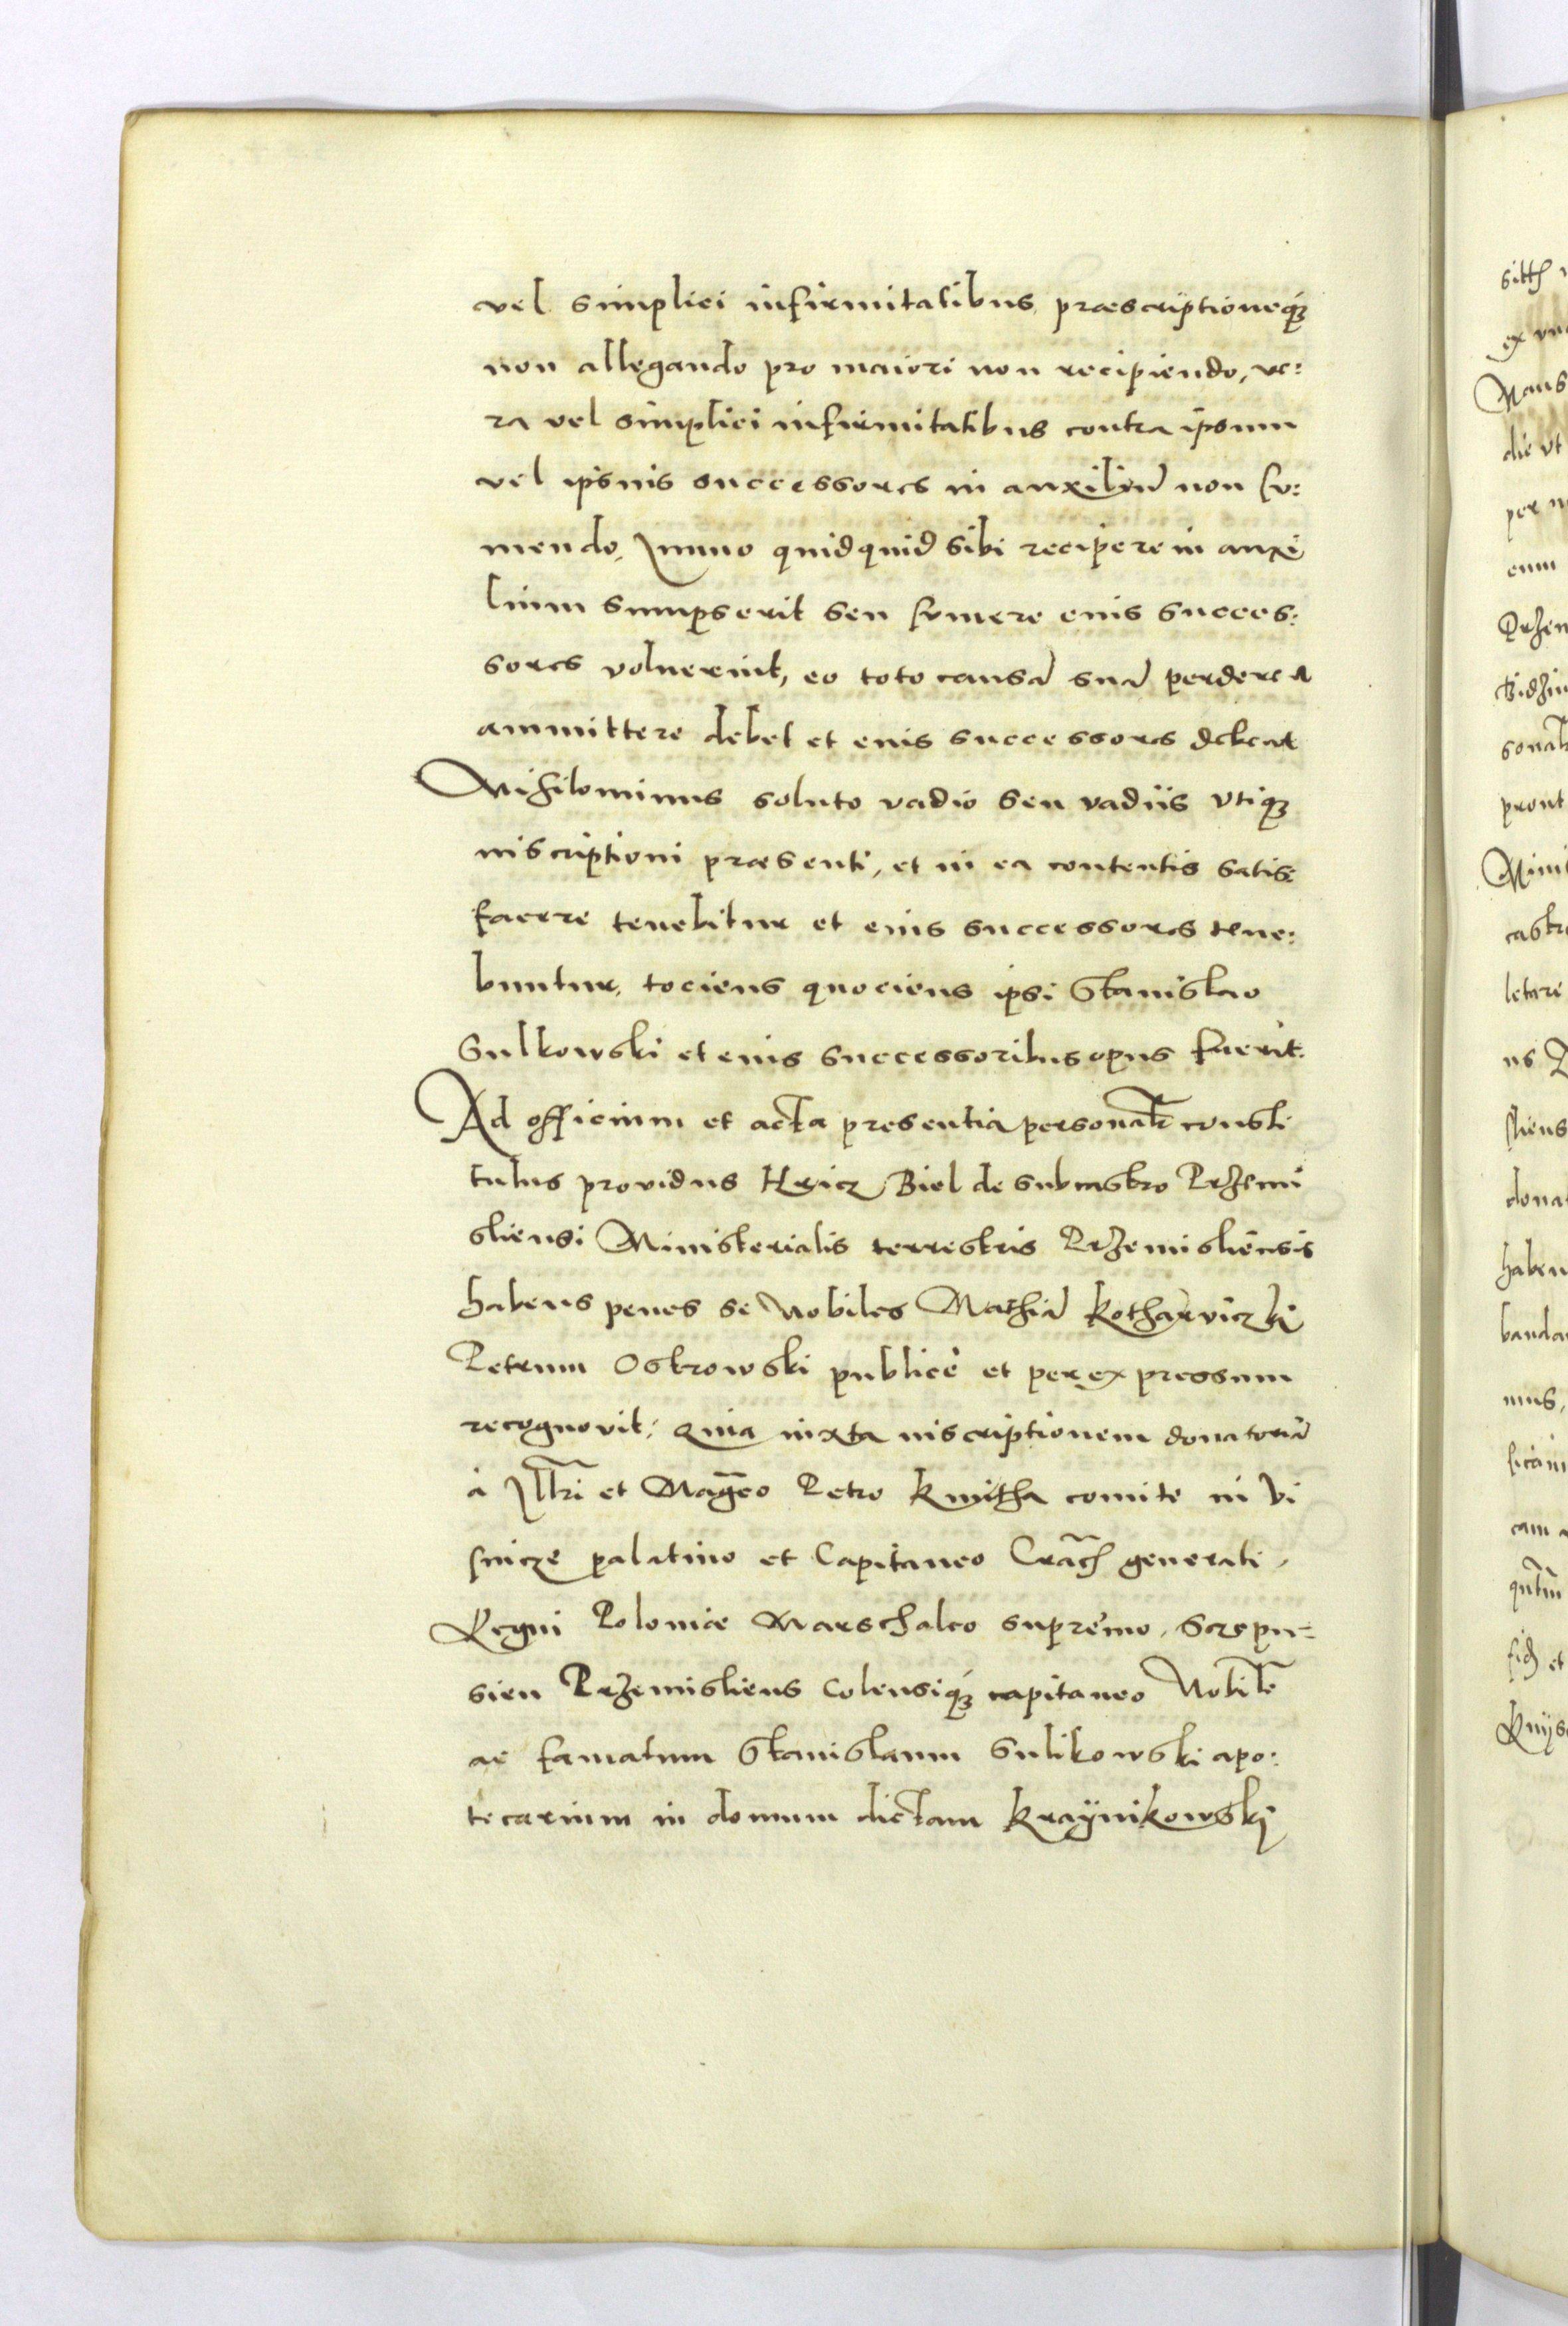 vel simplici infirmitatibus, præscriptioneq́ꝫ
non allegando pro maiori non recipiendo, ve:
ra vel simplici infirmitatibus contra ipsum
vel ipsius successores in auxiliū non su:
mendo, Immo quidquid sibi recipere in auxi
lium sumpserit seu sumere eius succes:
sores voluerint, eo toto causā suā perdere
ammittere debet et eius successores debent
Nihilominus soluto vadio seu vadiis vtiqꝫ
inscriptioni præsenti, et in ea contentis satis
facere tenebitur et eius successores tene:
buntur, tociens quociens ipsi Stanislao
Sulkowski et eius successoribus opus fuerit.
Ad officium et acta presentia personalr̄ consti
tutus providus Hricz Biel de subcastro Przemi
sliensi Ministerialis terrestris Przemisliensis
habens penes se Nobiles Mathiā Kotharviczki
Petrum Ostrowski publicè et per expressum
recognovit, Quia iuxta inscriptionem donatoriā
à Illr̄i et Mag̃co Petro Kmitha comite in Vi
snicze palatino et Capitaneo Crac̄h generali,
Regni Poloniæ Marschalco supremo, Scepu=
sien Przemisliens Colensiq́ꝫ capitaneo Nobile̅
ac famatum Stanislaum Sulikowski apo:
tecarium in domum dictam Kraÿnikowski
sitt
ex
die vt
per
eum
pront
letare
ns
donat
haben
mus,
cam
et